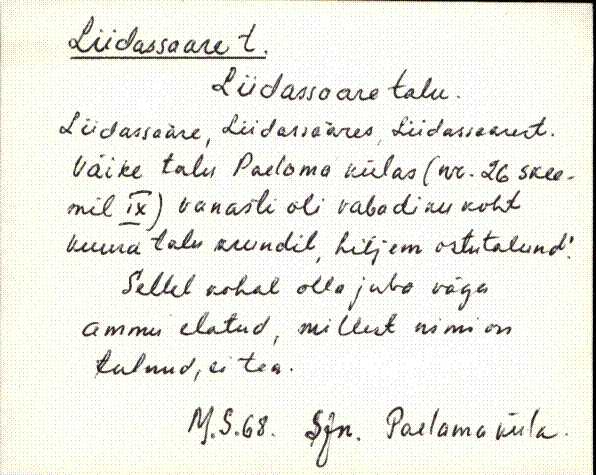 Liidassaare t.
Liidassaare talu.
Liidassaare, Liidassaares, Liidassaarest.
Väike talu Paeloma külas (nr. 26 skee-
mil IX) vanasti oli vabadiku koht
talu krundil, hiljem ostutalund.
Sellel kohal olla juba väga
ammu elatud, millest nimi on
tulnud, ei tea.
M.S.68. Sjn. Paeloma küla.